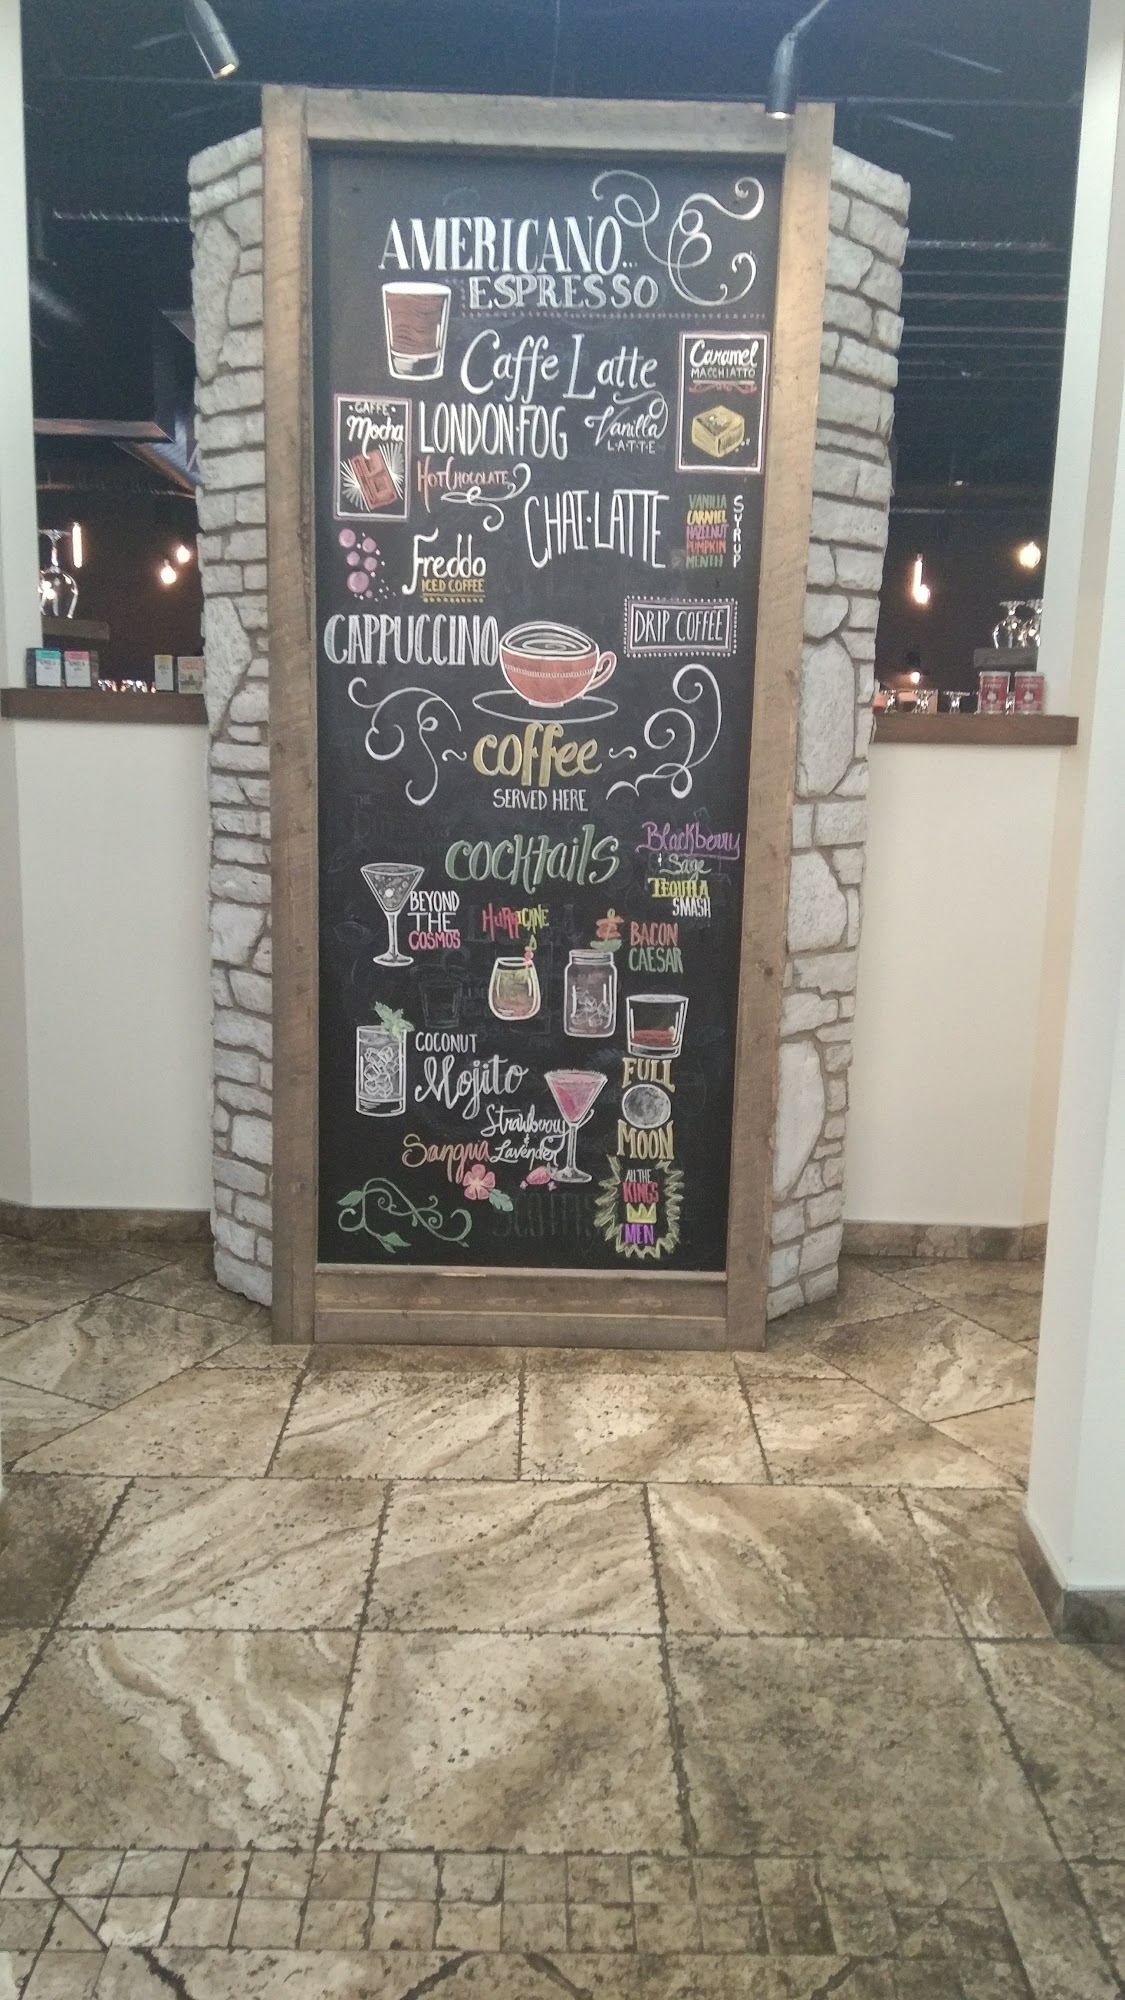 AMERICANO...
ESPRESSO
Caffe Latte
Caramel
MACCHIATTO
CAFFE
Mocha
LONDON·FOG
Vanilla
LATTE
Hot Chocolate
CHAI·LATTE
VANILLA
CARAMEL
HAZELNUT
PUMPKIN
MENTH
SYRUP
Freddo
ICED COFFEE
CAPPUCCINO
DRIP COFFEE
~ coffee ~
SERVED HERE
cocktails
Blackberry
& Sage
TEQUILA
SMASH
BEYOND
THE
COSMOS
HURRICANE
BACON
CAESAR
COCONUT
Mojito
FULL
MOON
Strawberry
& Lavender
Sangria
ALL THE
KINGS
MEN